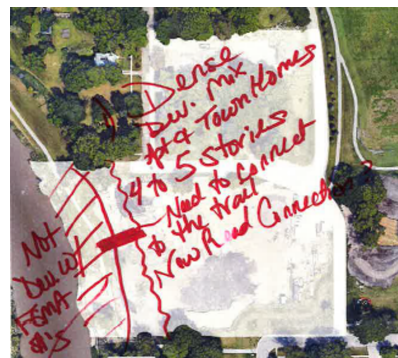 Dense
Dev. Mix
Apt & Town Homes
4 to 5 Stories
Need to Connect
to the trail
New Road Connections?
Not
Dev w/
FEMA